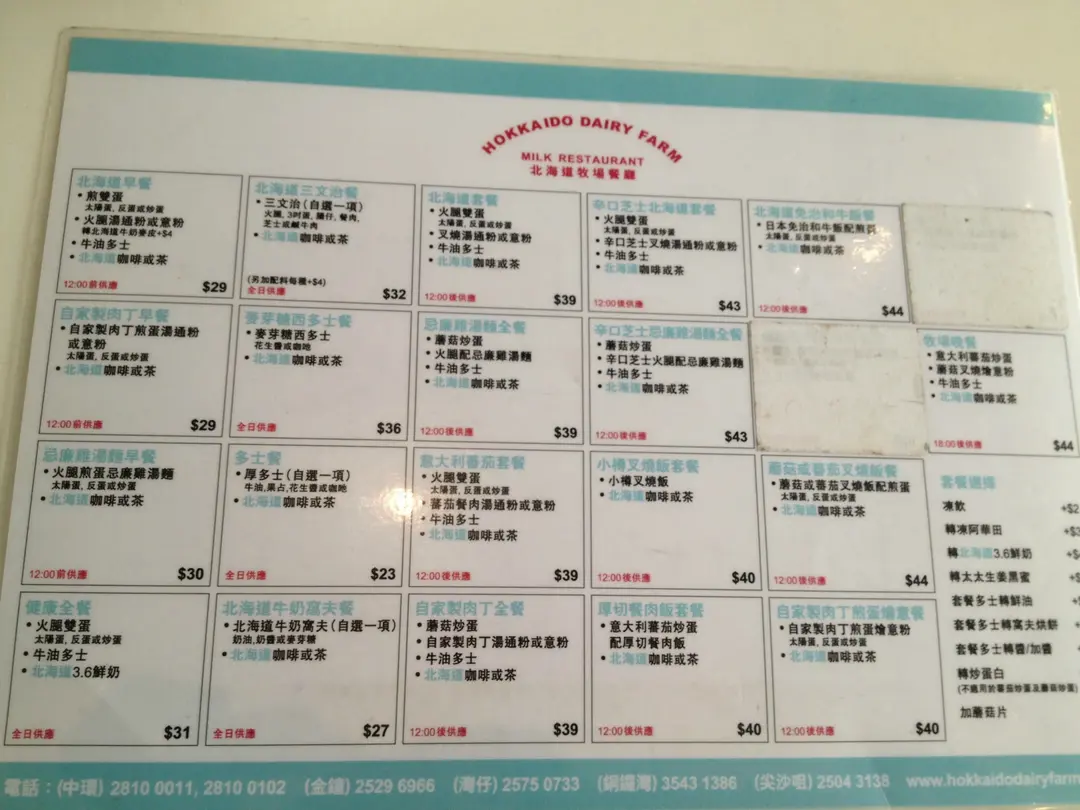 HOKKAIDO DAIRY FARM
MILK RESTAURANT
北海道牧場餐廳
北海道早餐
• 煎雙蛋
太陽蛋, 反蛋或炒蛋
• 火腿湯通粉或意粉
轉北海道牛奶麥皮+$4
• 牛油多士
• 北海道咖啡或茶
12:00前供應
$29
北海道三文治餐
• 三文治(自選一項)
火腿, 3吋蛋, 腸仔, 餐肉,
芝士或鹹牛肉
• 北海道咖啡或茶
(另加配料每種+$4)
全日供應
$32
北海道套餐
• 火腿雙蛋
太陽蛋, 反蛋或炒蛋
• 叉燒湯通粉或意粉
• 牛油多士
• 北海道咖啡或茶
12:00後供應
$39
辛口芝士北海道套餐
• 火腿雙蛋
太陽蛋, 反蛋或炒蛋
• 辛口芝士叉燒湯通粉或意粉
• 牛油多士
• 北海道咖啡或茶
12:00後供應
$43
北海道免治和牛飯餐
• 日本免治和牛飯配煎
太陽蛋, 反蛋或炒蛋
• 北海道咖啡或茶
12:00後供應
$44
自家製肉丁早餐
• 自家製肉丁煎蛋湯通粉
或意粉
太陽蛋, 反蛋或炒蛋
• 北海道咖啡或茶
12:00前供應
$29
麥芽糖西多士餐
• 麥芽糖西多士
花生醬或咖吔
• 北海道咖啡或茶
全日供應
$36
忌廉雞湯麵全餐
• 蘑菇炒蛋
• 火腿配忌廉雞湯麵
• 牛油多士
• 北海道咖啡或茶
12:00後供應
$39
辛口芝士忌廉雞湯麵全餐
• 蘑菇炒蛋
• 辛口芝士火腿配忌廉雞湯麵
• 牛油多士
• 北海道咖啡或茶
12:00後供應
$43
牧場晚餐
• 意大利蕃茄炒蛋
• 蘑菇叉燒燴意粉
• 牛油多士
• 北海道咖啡或茶
18:00後供應
$44
忌廉雞湯麵早餐
• 火腿煎蛋忌廉雞湯麵
太陽蛋, 反蛋或炒蛋
• 北海道咖啡或茶
12:00前供應
$30
多士餐
• 厚多士(自選一項)
牛油,果占,花生醬或咖吔
• 北海道咖啡或茶
全日供應
$23
意大利蕃茄套餐
• 火腿雙蛋
太陽蛋, 反蛋或炒蛋
• 蕃茄餐肉湯通粉或意粉
• 牛油多士
• 北海道咖啡或茶
12:00後供應
$39
小樽叉燒飯套餐
• 小樽叉燒飯
• 北海道咖啡或茶
12:00後供應
$40
蘑菇或蕃茄叉燒飯餐
• 蘑菇或蕃茄叉燒飯配煎蛋
太陽蛋, 反蛋或炒蛋
• 北海道咖啡或茶
12:00後供應
$44
健康全餐
• 火腿雙蛋
太陽蛋, 反蛋或炒蛋
• 牛油多士
• 北海道3.6鮮奶
全日供應
$31
北海道牛奶窩夫餐
• 北海道牛奶窩夫(自選一項)
奶油, 奶醬或麥芽糖
• 北海道咖啡或茶
全日供應
$27
自家製肉丁全餐
• 蘑菇炒蛋
• 自家製肉丁湯通粉或意粉
• 牛油多士
• 北海道咖啡或茶
12:00後供應
$39
厚切餐肉飯套餐
• 意大利蕃茄炒蛋
配厚切餐肉飯
• 北海道咖啡或茶
12:00後供應
$40
自家製肉丁煎蛋燴意餐
• 自家製肉丁煎蛋燴意粉
太陽蛋, 反蛋或炒蛋
• 北海道咖啡或茶
12:00後供應
$40
套餐選擇
凍飲 +$2
轉凍阿華田
轉北海道3.6鮮奶
轉太太生薑黑蜜
套餐多士轉鮮油
套餐多士轉窩夫烘餅
套餐多士轉醬/加醬
轉炒蛋白
(不適用於蕃茄炒蛋及蘑菇炒蛋)
加蘑菇片
電話：(中環) 2810 0011, 2810 0102 (金鐘) 2529 6966 (灣仔) 2575 0733 (銅鑼灣) 3543 1386 (尖沙咀) 2504 3138 www.hokkaidodairyfarm